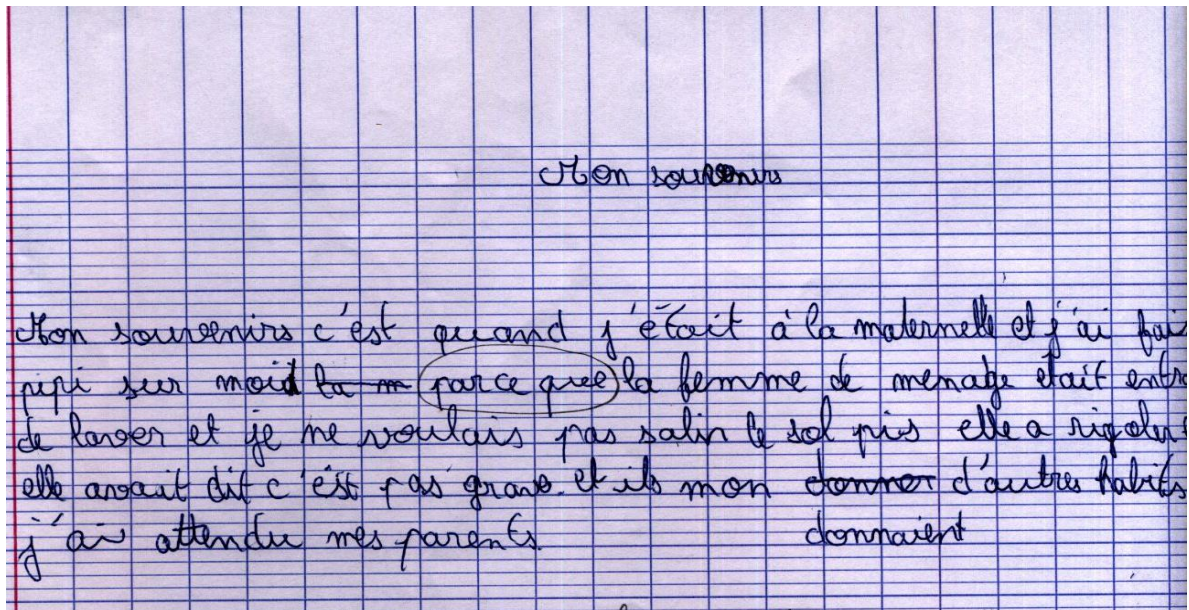 Mon souvenirs
Mon souvenirs c'est quand j'était à la maternelle et j'ai fais
pipi sur moid la m parce que la femme de menage était entra
de laver et je ne voulais pas salir le sol pis elle a rigoler
elle avait dit c'est pas grave. et ils mon donner d'autres habits
j'ai attendu mes parents. donnaient